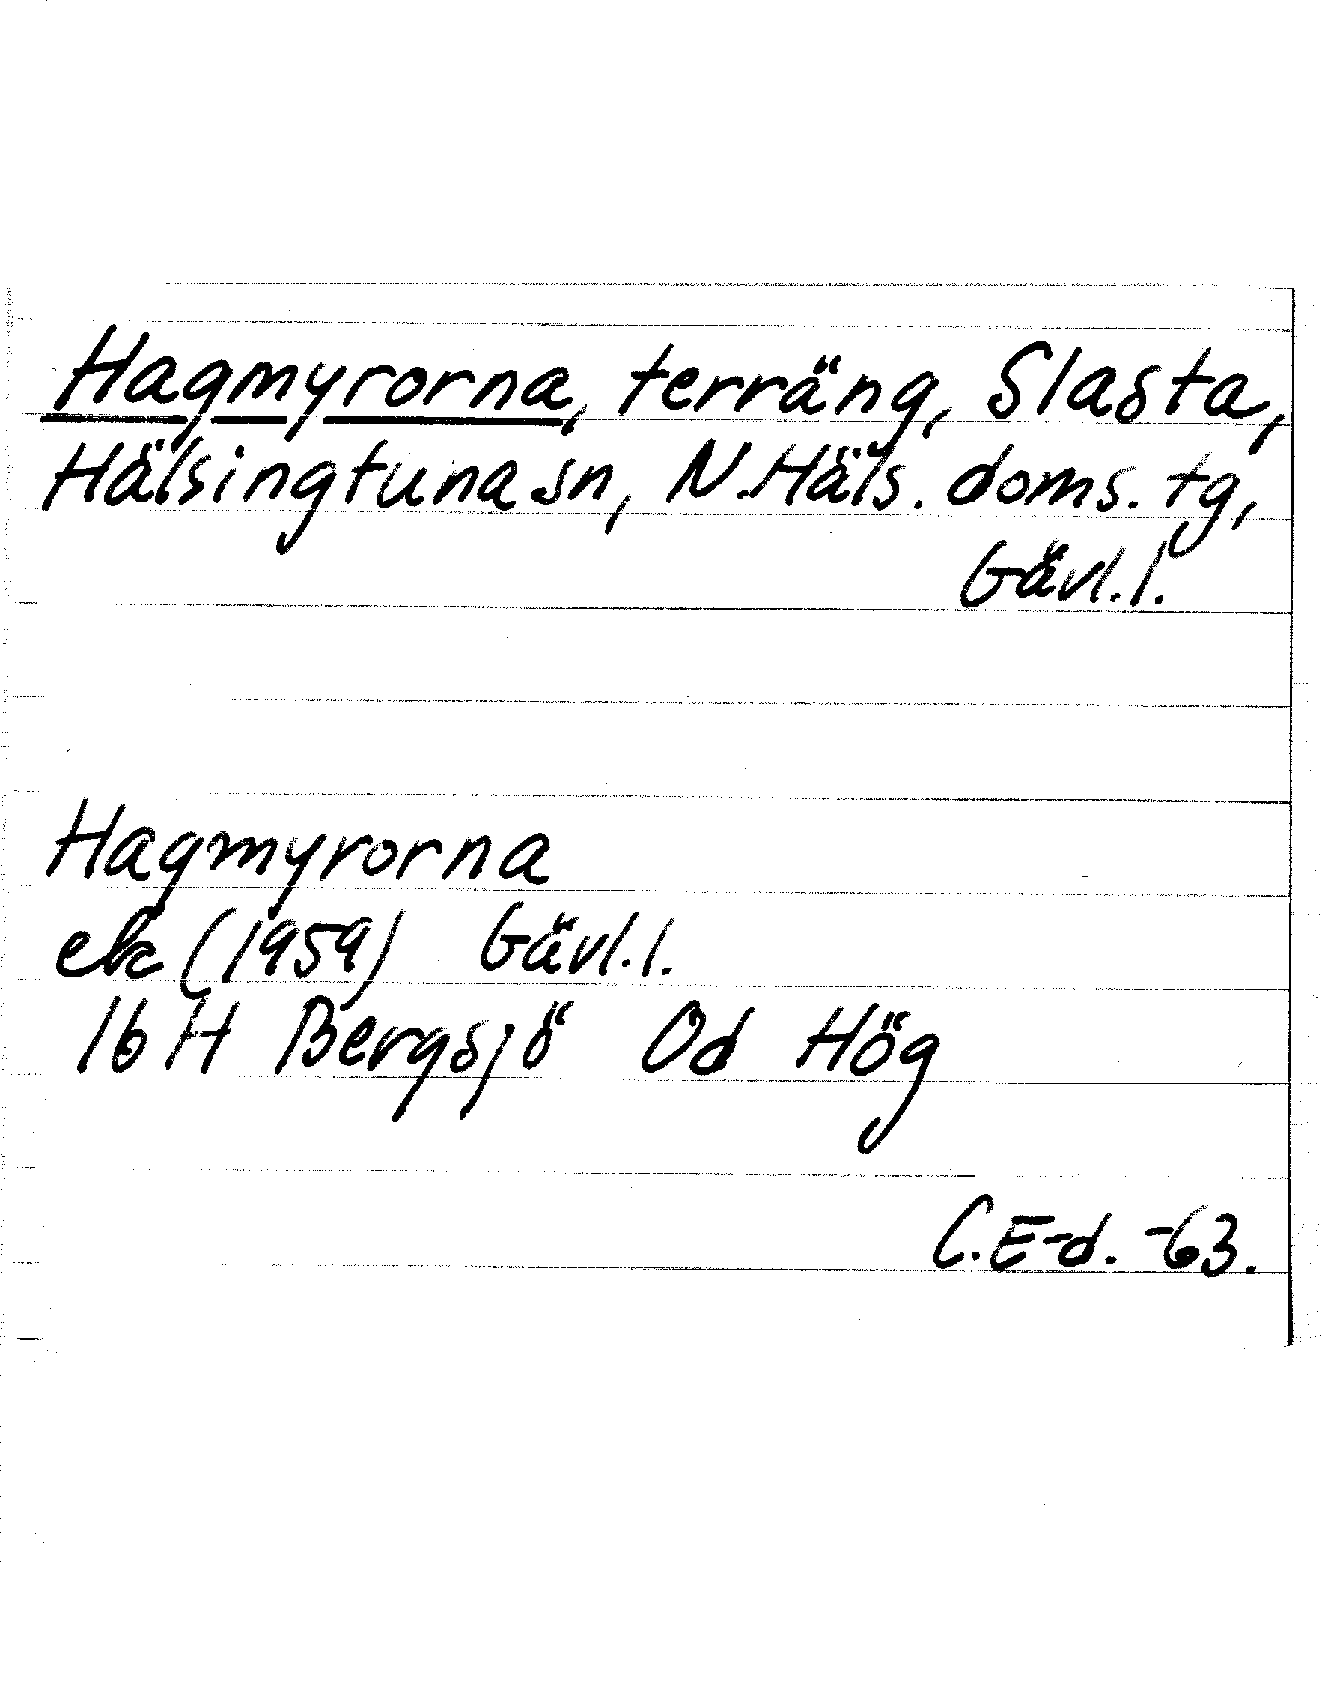 Hagmyrorna, terräng, Slasta,
Hälsingtuna sn, N. Häls. doms. tg,
Gävl. l.
Hagmyrorna
ek (1959) Gävl. l.
16 H Bergsjö Od Hög
C. E-d. -63.